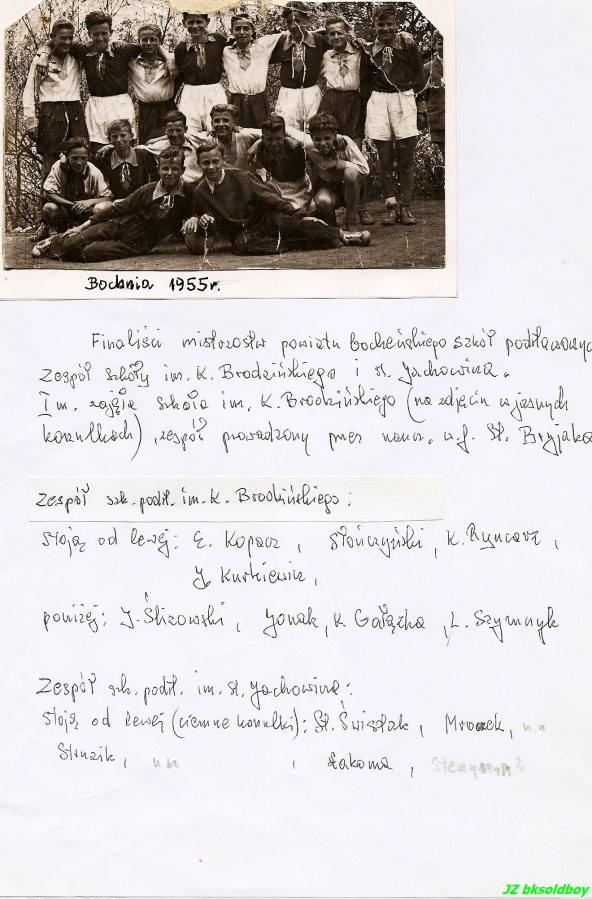 Bochnia 1955r.
Finaliści mistrzostw powiatu bocheńskiego szkół podstawowych
Zespół szkoły im. K. Brodzińskiego i st. Jachowicza.
I m. zajęła szkoła im. K. Brodzińskiego (na zdjęciu w jasnych
koszulkach), zespół prowadzony przez naucz. w.f. St. Bryjaka
Zespół szk. podst. im. K. Brodzińskiego:
stoją od lewej: E. Kopacz, Słończyński, K. Ryncarz,
J. Kurkiewicz,
poniżej: J. Ślizowski, Jonak, K. Gałązka, L. Szymczyk
Zespół szk. podst. im. st. Jachowicza:
stoją od lewej (ciemne koszulki): St. Świstak, Mroczek, n.n
Struzik, n n , Łakoma,
JZ bksoldboy